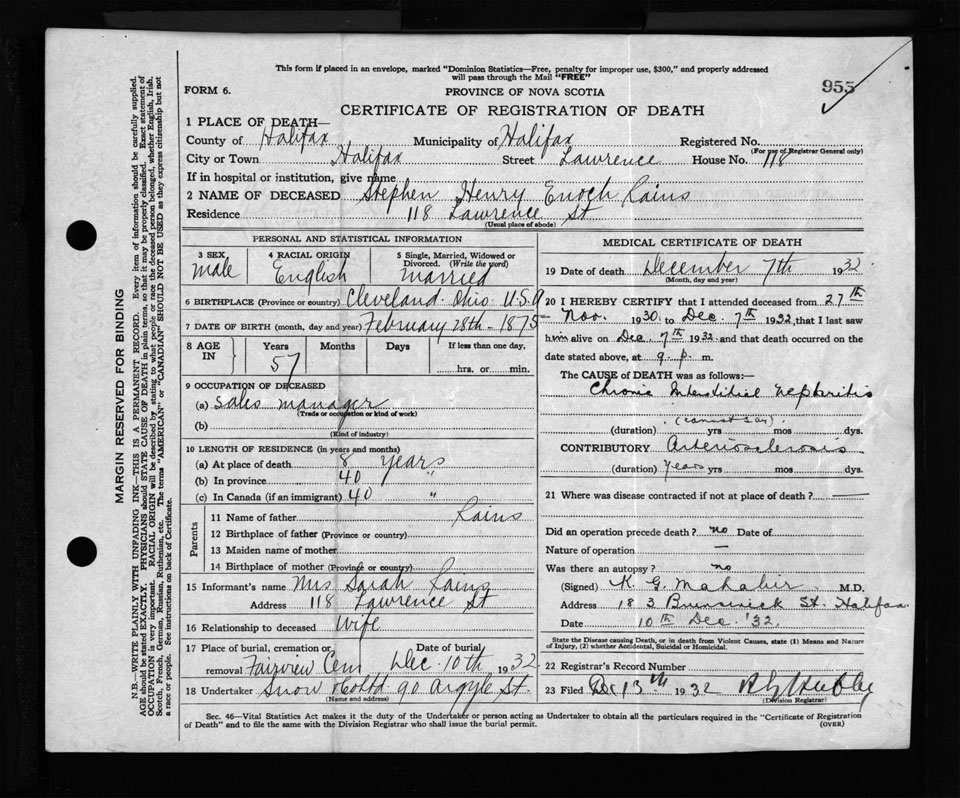 This form if placed in an envelope, marked "Dominion Statistics—Free, penalty for improper use, $300," and properly addressed
will pass through the Mail "FREE"
955
FORM 6.
PROVINCE OF NOVA SCOTIA
CERTIFICATE OF REGISTRATION OF DEATH
1 PLACE OF DEATH—
County of Halifax Municipality of Halifax Registered No.
(For use of Registrar General only)
City or Town Halifax Street Lawrence House No. 118
If in hospital or institution, give name
2 NAME OF DECEASED Stephen Henry Enoch Rains
Residence 118 Lawrence St
(Usual place of abode)
PERSONAL AND STATISTICAL INFORMATION
3 SEX 4 RACIAL ORIGIN 5 Single, Married, Widowed or
Divorced. (Write the word)
male English married
6 BIRTHPLACE (Province or country) Cleveland Ohio U.S.A
7 DATE OF BIRTH (month, day and year) February 28th - 1875
8 AGE IN Years Months Days If less than one day,
57 hrs. or min.
9 OCCUPATION OF DECEASED
(a) Sales manager
(Trade or occupation or kind of work)
(b)
(Kind of industry)
10 LENGTH OF RESIDENCE (in years and months)
(a) At place of death 8 years
(b) In province 40 "
(c) In Canada (if an immigrant) 40 "
Parents
11 Name of father Rains
12 Birthplace of father (Province or country)
13 Maiden name of mother
14 Birthplace of mother (Province or country)
15 Informant's name Mrs Sarah Rains
Address 118 Lawrence St
16 Relationship to deceased Wife
17 Place of burial, cremation, or Date of burial
removal Fairview Cem Dec. 10th 1932
18 Undertaker Snow & Co Ltd 90 Argyle St.
(Name and address)
MEDICAL CERTIFICATE OF DEATH
19 Date of death December 7th 1932
(Month, day and year)
20 I HEREBY CERTIFY that I attended deceased from 27th
Nov. 1930 to Dec. 7th 1932, that I last saw
him alive on Dec. 7th 1932 and that death occurred on the
date stated above, at 9 p. m.
The CAUSE of DEATH was as follows:—
Chronic Interstitial Nephritis
(cannot say)
(duration) yrs mos dys.
CONTRIBUTORY Arteriosclerosis
(duration) years yrs mos dys.
21 Where was disease contracted if not at place of death? —
Did an operation precede death? no Date of
Nature of operation —
Was there an autopsy? no
(Signed) K. G. Mahabir M.D.
Address 183 Brunswick St. Halifax
Date 10th Dec. '32.
State the Disease causing Death, or in death from Violent Causes, state (1) Means and Nature
of Injury, (2) whether Accidental, Suicidal or Homicidal.
22 Registrar's Record Number
23 Filed Dec 13th 1932
(Division Registrar)
Sec. 46—Vital Statistics Act makes it the duty of the Undertaker or person acting as Undertaker to obtain all the particulars required in the "Certificate of Registration
of Death" and to file the same with the Division Registrar who shall issue the burial permit.
(OVER)
MARGIN RESERVED FOR BINDING
N.B.—WRITE PLAINLY WITH UNFADING INK—THIS IS A PERMANENT RECORD. Every item of information should be carefully supplied.
AGE should be stated EXACTLY. PHYSICIANS should STATE CAUSE OF DEATH in plain terms, so that it may be properly classified. Exact statement of
OCCUPATION is very important. RACIAL ORIGIN will be described by stating to what people or race the deceased person belonged, whether English, Irish,
Scotch, French, German, Russian, Ruthenian, etc. The terms "AMERICAN" or "CANADIAN" SHOULD NOT BE USED as they express citizenship but not
a race or people. See instructions on back of Certificate.